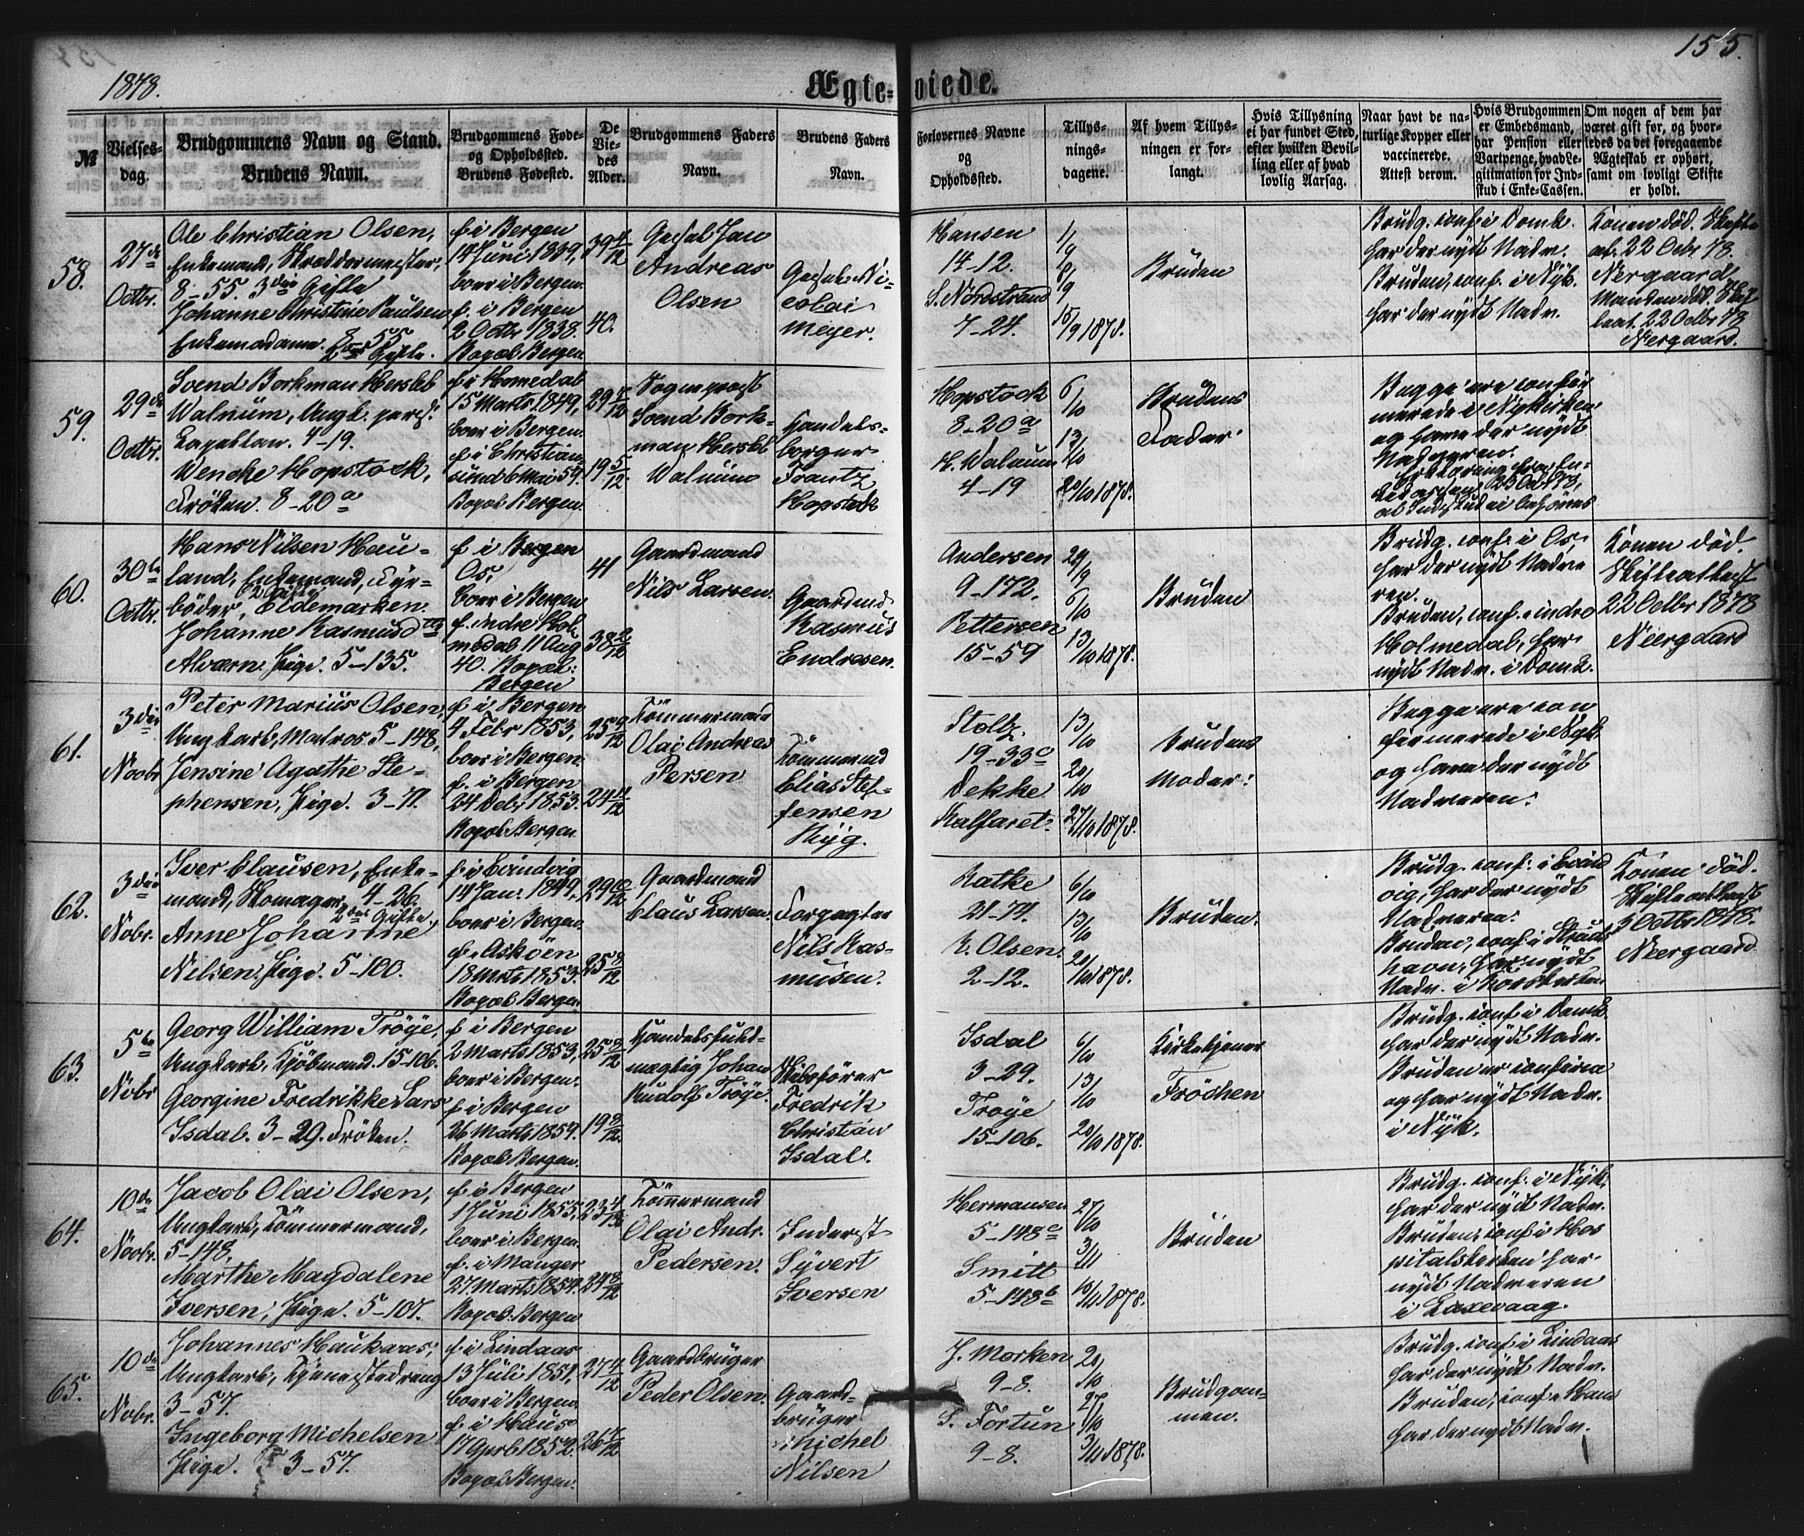 1878.
Ægte-viede.
155.
№
Vielses-
dag.
Brudgommens Navn og Stand.
Brudens Navn.
Brudgommens Føde-
og Opholdssted.
Brudens Fødested.
De
Vie-
des
Alder.
Brudgommens Faders
Navn.
Brudens Faders
Navn.
Forlovernes Navne
og
Opholdssted.
Tillys-
nings-
dagene.
Af hvem Tillys-
ningen er for-
langt.
Hvis Tillysning
ei har fundet Sted,
efter hvilken Bevil-
ling eller af hvad
lovlig Aarsag.
Naar havt de na-
turlige Kopper eller
vaccinerede.
Attest derom.
Hvis Brudgommen
er Embedsmand,
har Pension eller
Vartpenge, hvad Le-
gitimation for Ind-
skud i Enke-Cassen.
Om nogen af dem har
været gift før, og hvor-
ledes da det foregaaende
Ægteskab er ophørt,
samt om lovligt Skifte
er holdt.
58.
27de
Octbr.
Ole Christian Olsen,
Enkemand, Skræddermester,
8-55. 3die Gifte
Johanne Christine Paulsen
Enkemadame. 8-55
2det Gifte.
f. i Bergen
boer i Bergen.
f. i Bergen
2 Octbr 1838.
Bopæl Bergen
39 4/12
40.
Jan
Andreas
Olsen
Nicolai
Meyer.
Hansen
14-12.
S. Nordstrand
7-24.
1/9
8/9
15/9 1878.
Bruden
Brudg. conf. i Domk.
har der nydt Nadv.
Bruden, conf. i Nyk.
har der nydt Nadv.
Konen død. Skifte
at. 22 Octbr 78.
Neergaard
Manden død. Skif
teat. 22 Octbr 78
Neergaard.
59.
29de
Octbr.
Svend Borkman Hersleb
Walnum, Ungk.
4-19.
Wencke Hopstock,
Frøken. 8-20a
f. i Homedal
15 Marts 1849,
boer i Bergen.
f. i Christian-
sund 6 Mai 59.
Bopæl Bergen.
29 7/12
19 5/12
Sogneprost
Svend Bork-
man Hersleb
Walnum
Handels-
borger
Frantz
Hopstock
Hopstock
8-20a
H. Walnum
4-19
6/10
13/10
20/10 1878.
Brudens
Fader.
Begge ere confir
merede i Nykirken
og have der nydt
Nadveren.
60.
30te
Octbr.
Hans Nilsen Hau-
land, Enkemand, Fyr-
bøder, Eldemarken.
2 Gifte
Johanne Rasmusd
Alværn. Pige. 5-135.
f. i Bergen
Os,
boer i Bergen
f. Indre Hol
medal 11 Aug
40. Bopæl:
Bergen
41
38 2/12
Gaardmand
Nils Larsen.
Gaardmd
Rasmus
Endresen.
Andersen
9-172.
Pettersen
15-59
29/9
6/10
13/10 1878.
Bruden
Brudg. conf. i Os,
har der nydt Nadve
ren.
Bruden, conf. indre
Holmedal, har
nydt Nadv. i Domk.
Konen død.
Skifteattest
22 Octbr 1878
Neergaard
61.
3die
Novbr
Peter Marius Olsen,
Ungkarl, Matros. 5-148,
Jensine Agathe Ste-
phensen, Pige. 3-71.
f. i Bergen
4 Febr 1853,
boer i Bergen.
f. i Bergen
24 Debr 1853.
Bopæl Bergen.
25 9/12
24 11/12
Tømmermand
Olai Andreas
Persen
Tømmermand
Elias Stef-
fensen
Ryg.
Stoltz
19-33c
Dekke
Kalfaret.
13/10
20/10
27/10 1878.
Brudens
Moder.
Begge ere con
firmerede i Nyk.
og have der nydt
Nadveren.
62.
3die
Nobr.
Iver Clausen, Enke-
mand, Skomager, 4-26.
2det Gifte,
Anne Johanne
Nilsen. Pige. 5-100.
f. i Evindvig
14 Jan. 1849,
boer i Bergen.
f. Askøen
18 Marts 1853.
Bopæl Bergen.
29 10/12
25 8/12
Gaardmand
Claus Larsen.
Forpagter
Nils Ras-
musen.
Ratke
21-74.
K. Olsen.
2-12.
6/10
13/10
20/10 1878.
Bruden.
Brudg. conf. i Evind
vig, har der nydt
Nadveren.
Bruden, conf. i Struds
havn, har nydt
Nadv. i Korskirken
Konen død.
Skifteattest
5 Octbr 1878.
Neergaard
63.
5te
Nobr
Georg William Trøye,
Ungkarl, Kjøbmand. 15-106.
Georgine Fredrikke Lars
Isdal. 3-29. Frøken.
f. i Bergen
2 Marts 1853,
boer i Bergen.
f. i Bergen
26 Marts 1859.
Bopæl Bergen.
25 8/12
19 8/12
Handelsfuld-
mægtig Johan
Rudolf Trøye.
Skibsfører
Fredrik
Christian
Isdal.
Isdal
3-29.
Trøye
15-106.
6/10
13/10
20/10 1878.
Kirketjener
Frøchen
Brudg. conf. i Domk.
har der nydt Nadv.
Bruden er confirm
og har nydt Nadv.
i Nyk.
64.
10de
Novbr.
Jacob Olai Olsen,
Ungkarl, Tømmermand,
5-148.
Marthe Magdalene
Iversen, Pige. 5-107.
f. i Bergen
1 Juni 1855,
boer i Bergen.
f. i Manger
27 Marts 1854.
Bopæl Bergen
23 4/12
24 8/12
Tømmermand
Olai Andr.
Pedersen.
Inderst
Syvert
Iversen
Hermansen
5-148c
Smitt
5-148b
27/10
3/11
10/11 1878.
Bruden
Brudg. conf. i Nyk,
har der nydt Nadv.
Bruden, conf. i Hos
pitalskirken har
nydt Nadveren
i Laxevaag.
65.
10de
Nobr.
Johannes Haukaas,
Ungkarl, Tjenestedreng
3-57.
Ingeborg Michelsen
Pige. 3-57.
f. i Lindaas
13 Juli 1851,
boer i Bergen.
f. i Haus
17 April 1852.
Bopæl Bergen.
27 4/12
26 7/12
Gaardbruger
Peder Olsen.
Gaard-
bruger
Michel
Nilsen
J. Morken
9-8.
S. Fortun
9-8.
20/10
27/10
3/11 1878.
Brudgom-
men.
Brudg. conf. i Lindaas
har der nydt Nadv.
Bruden, conf. i Ham
har der nydt Nadv.